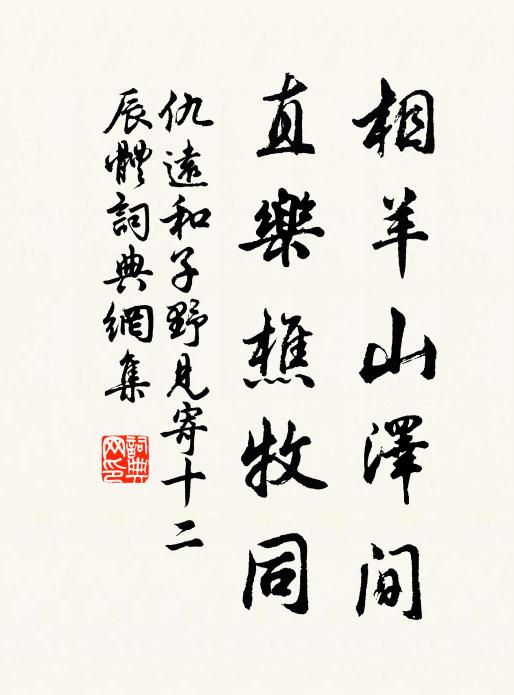 相羊山澤间
直樂樵牧同
仇遠和子野見寄十二
辰體詞典網集
詞典网印